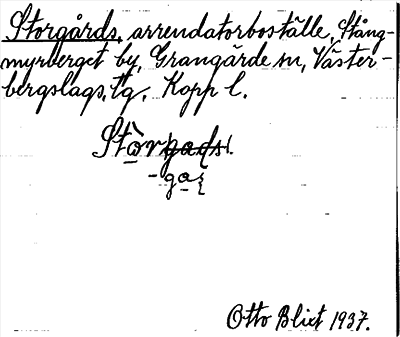 Storgårds, arrendatorboställe, Stång-
myrberget by, Grangärde sn, Väster-
bergslags. tg, Kopp l.
Stòrgads.
-gaʂ
Otto Blixt 1937.